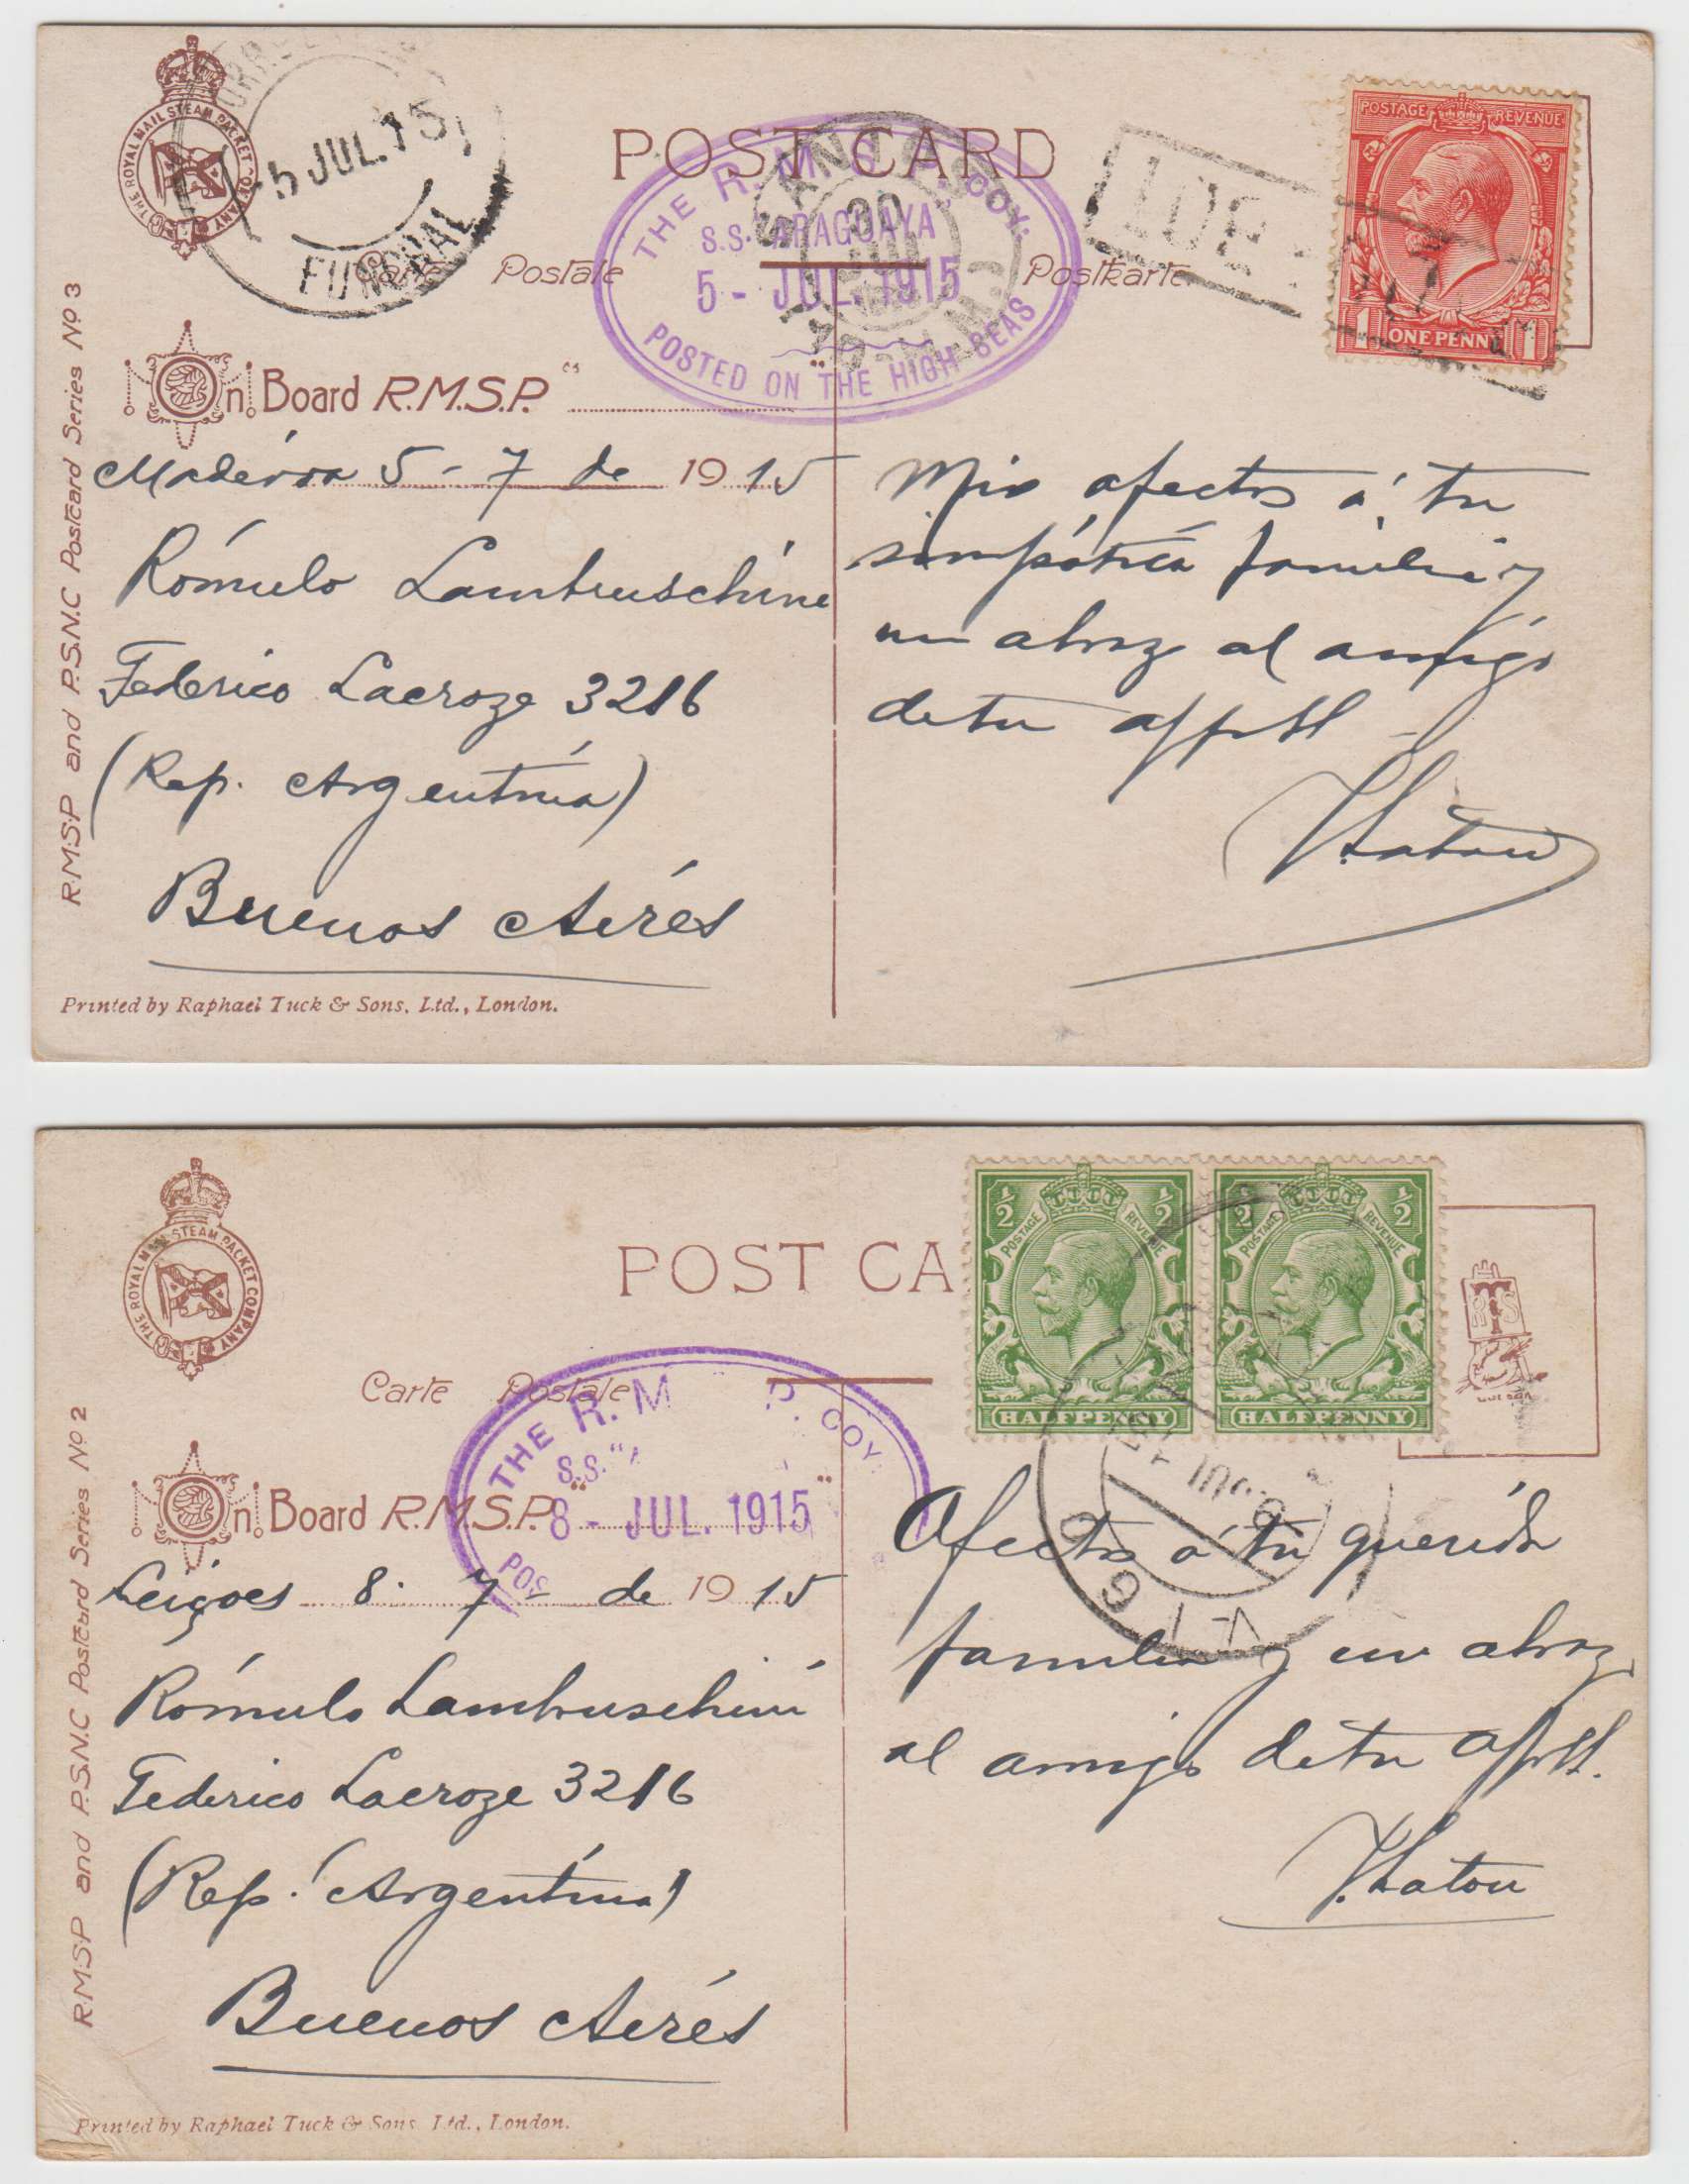 THE ROYAL MAIL STEAM PACKET COMPANY
5 JUL. 15
FUNCHAL
POST CARD
Carte Postale Postkarte
THE R.M.S.P. COY.
S.S. "ARAGUAYA"
5 - JUL. 1915
POSTED ON THE HIGH SEAS
SANTOS
30
POSTAGE REVENUE
1 ONE PENNY 1
On Board R.M.S.P. "
Madeira 5 - 7 de 1915
Rómulo Lambruschini
Federico Lacroze 3216
(Rep. Argentina)
Buenos Aires
Mis afectos á tu
simpática familia y
un abrazo al amigo
de tu
Printed by Raphael Tuck & Sons, Ltd., London.
R.M.S.P and P.S.N.C Postcard Series No 3
THE ROYAL MAIL STEAM PACKET COMPANY
POST CA
Carte Postale
½ POSTAGE REVENUE ½
HALFPENNY
½ POSTAGE REVENUE ½
HALFPENNY
RTS
THE R.M P. COY.
S.S. "A
8 - JUL. 1915
POS
On Board R.M.S.P. " "
Leixoes 8 - 7 - de 1915
Rómulo Lambruschini
Federico Lacroze 3216
(Rep. Argentina)
Buenos Aires
Afectos á tu querida
familia y un abrazo
al amigo de tu
Printed by Raphael Tuck & Sons Ltd., London.
R.M.S.P and P.S.N.C Postcard Series No 2